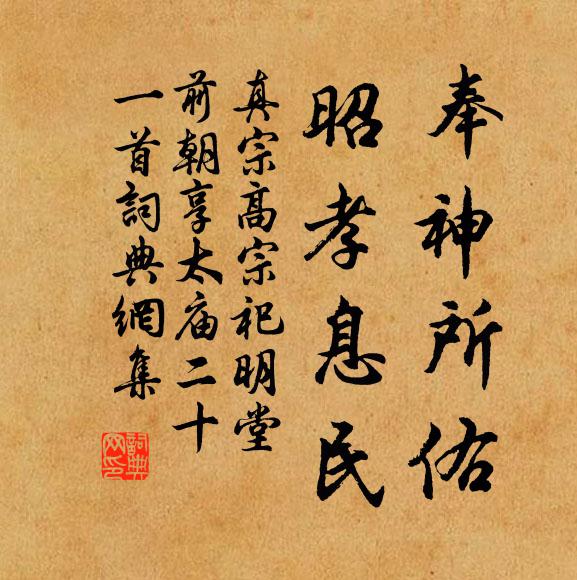 奉神所佑
昭孝息民
真宗高宗祀明堂
前朝享太庙二十
一首詞典網集
詞典
网印